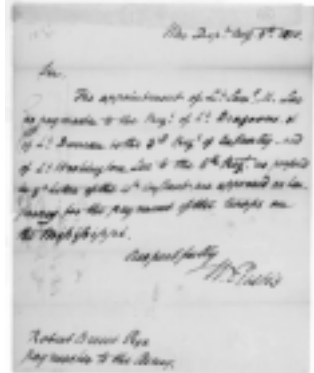 War Dept. Aug. 8th 1810.
Sir.
The appointment of Lt. Saml. M. Lee
as paymaster to the Regt. of Lt. Dragoons of
of Lt. Duncan to the 3d Regt. of Infantry and
of Lt. Washington Lee to the 5th Regt. as
in letter of the inst. are approved as
for the payment of the troops on
the
Respectfully
W. Eustis
Robert Brent Esqr.
paymaster to the Army.